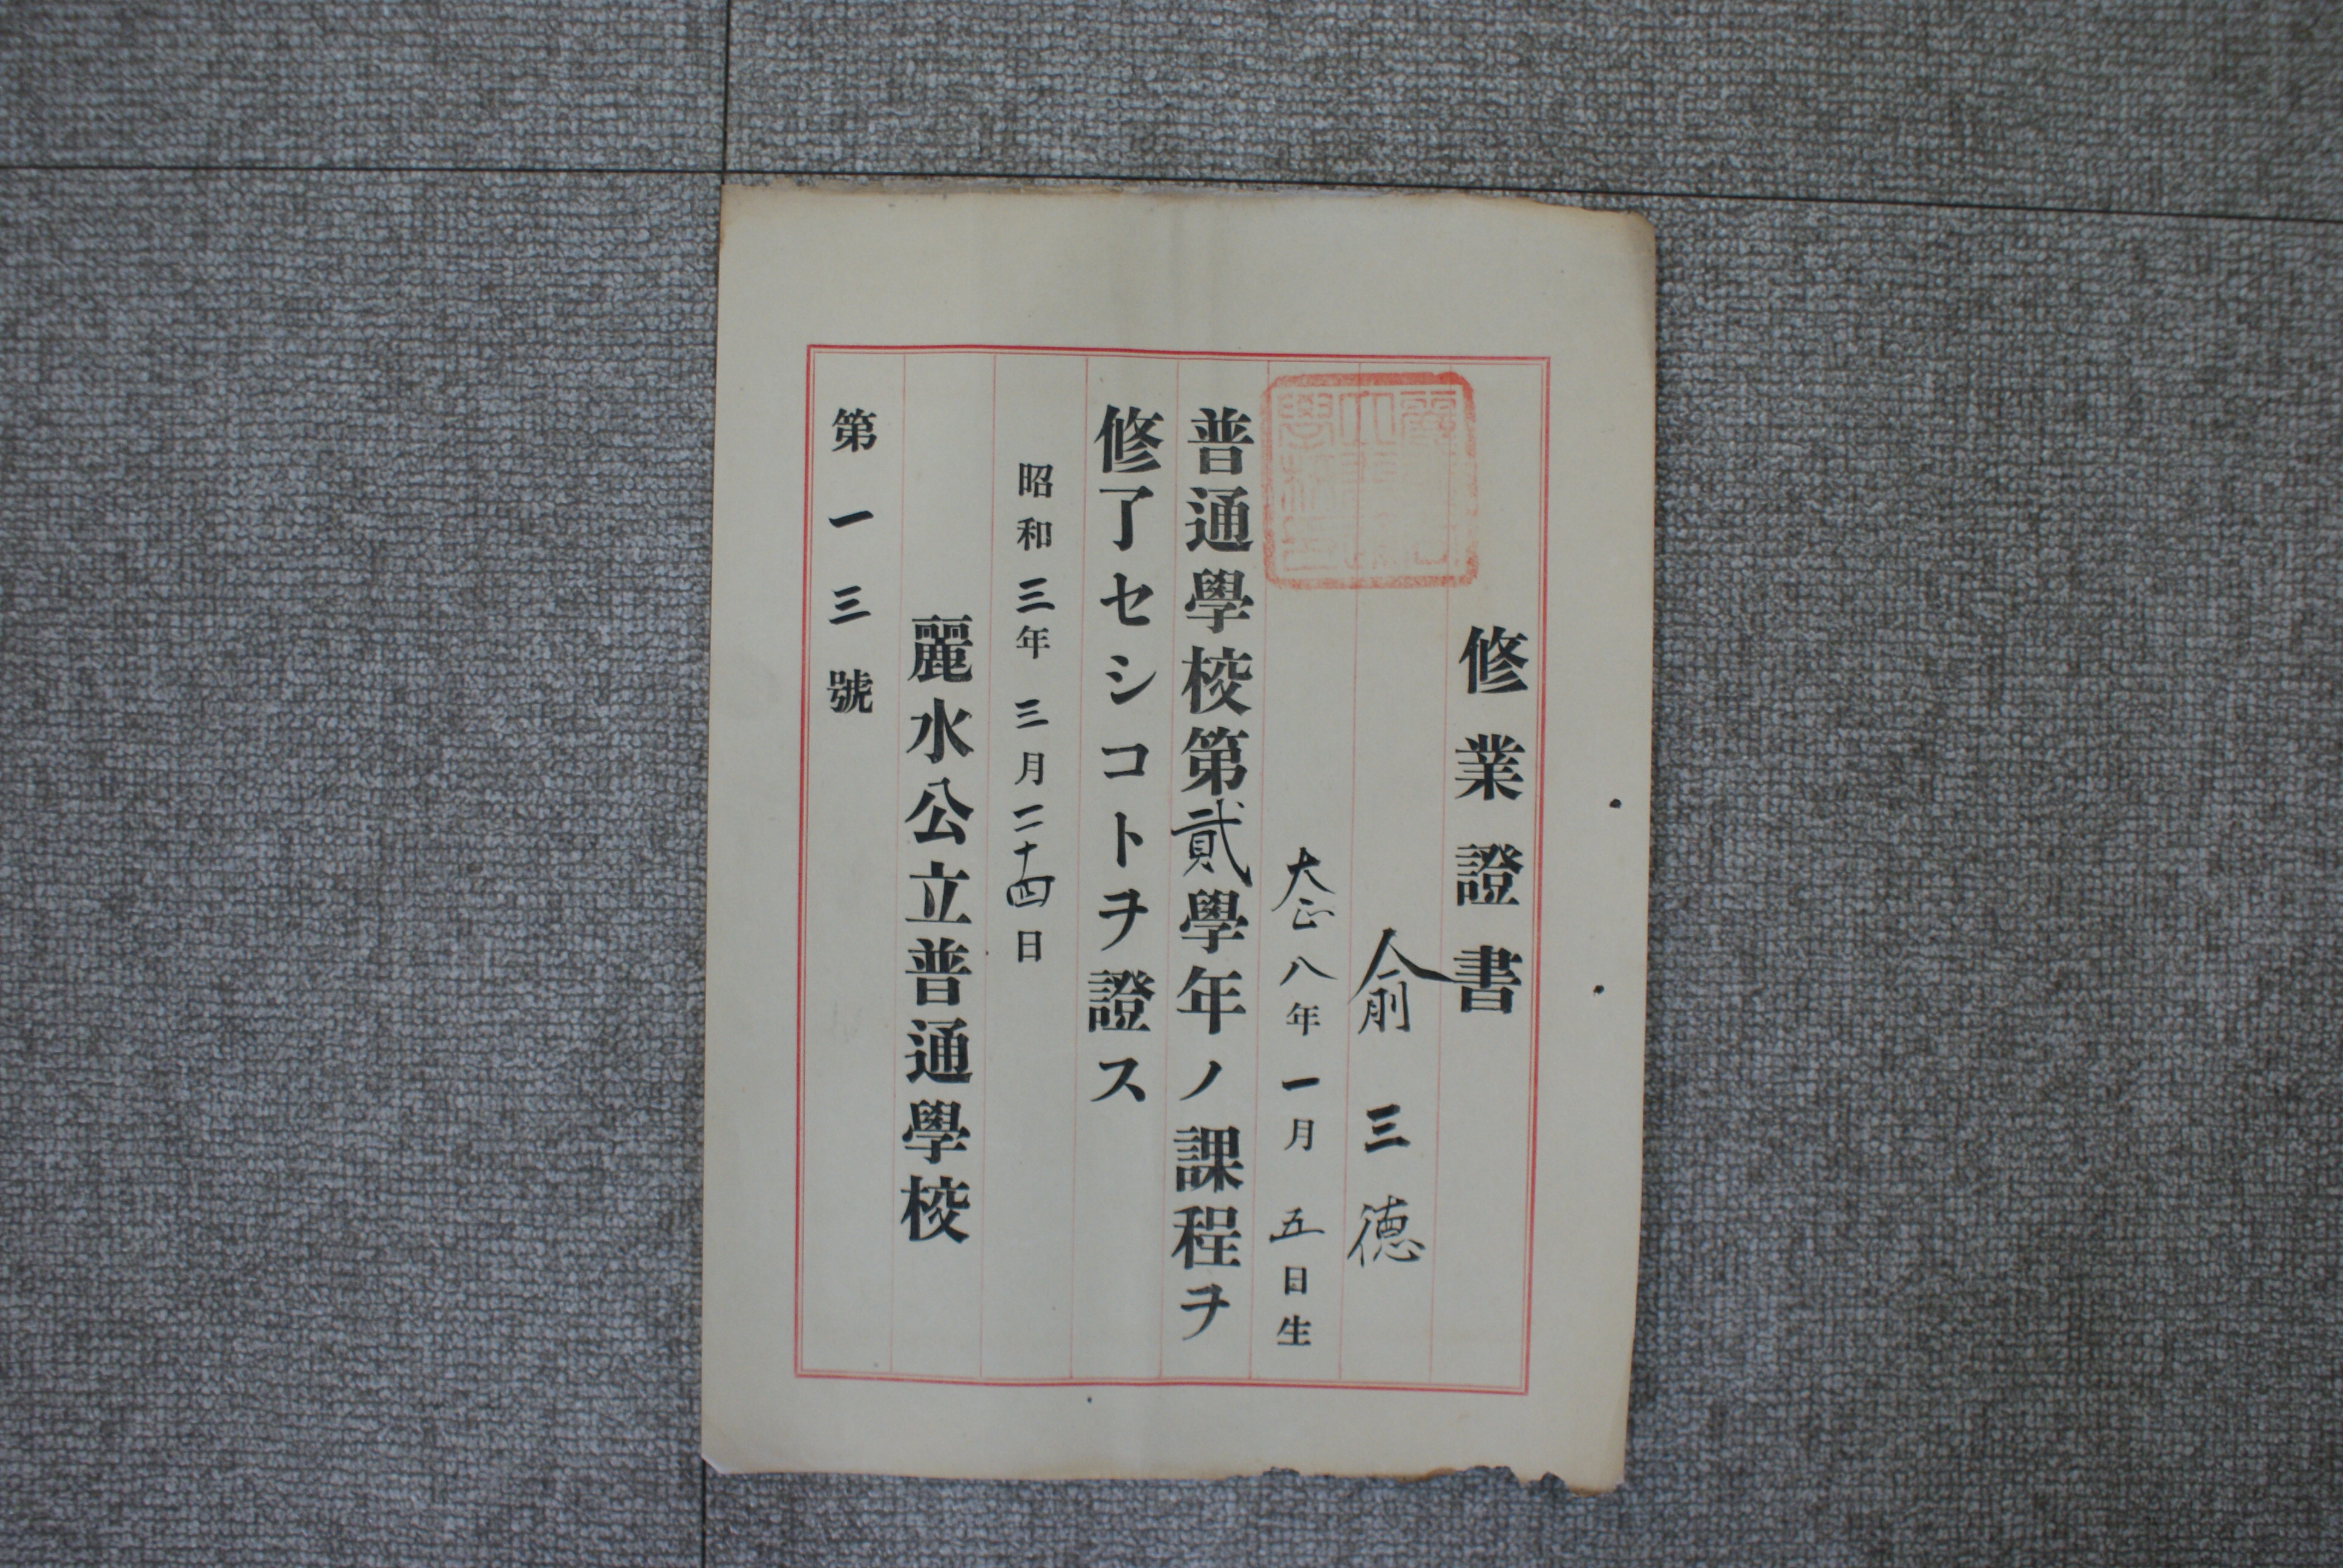 修業證書
俞三德
大正八年一月五日生
普通學校第貳學年ノ課程ヲ
修了セシコトヲ證ス
昭和三年三月二十四日
麗水公立普通學校
第一三號